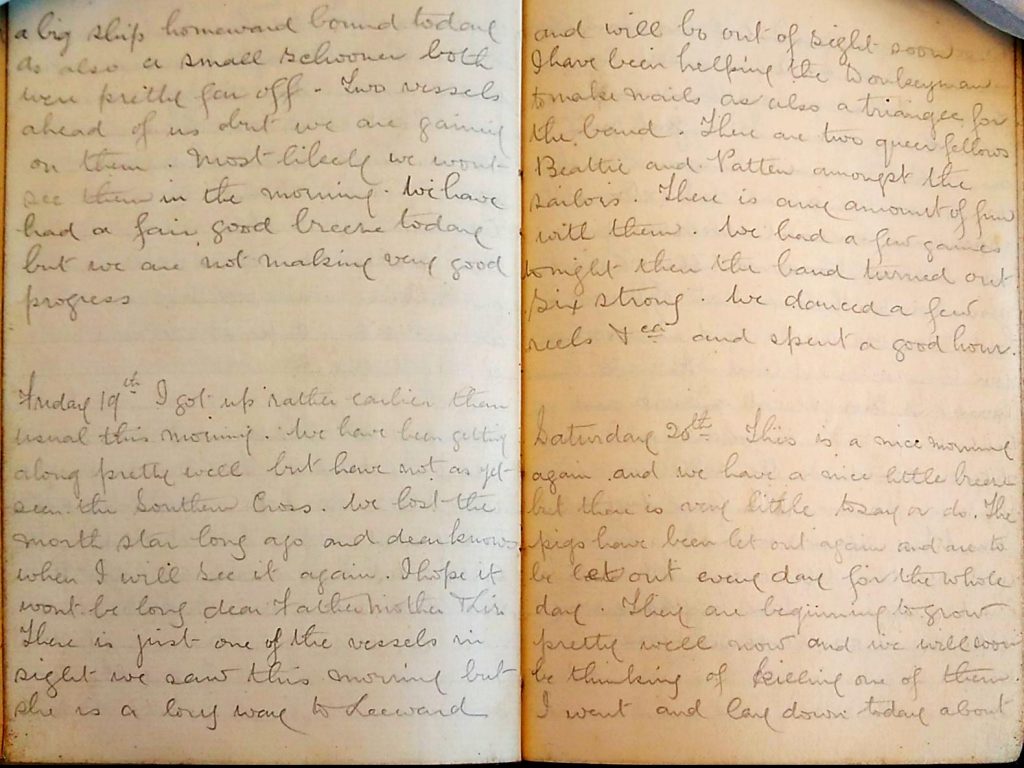 a big ship homeward bound today
as also a small schooner both
were pretty far off. Two vessels
ahead of us but we are gaining
on them. Most likely we wont
see them in the morning. We have
had a fair good breeze today
but we are not making very good
progress
Friday 19th I got up rather earlier than
usual this morning. We have been getting
along pretty well but have not as yet
seen the Southern Cross. We lost the
north star long ago and dear knows
when I will see it again. I hope it
wont be long dear Father Mother
There is just one of the vessels in
sight we saw this morning but
she is a long way to Leeward
and will be out of sight soon
I have been helping the Donkeyman
to make nails as also a triangle for
the band. There are two queer fellows
Beattie and Patten amongst the
sailors. There is any amount of fun
with them. We had a few games
tonight then the band turned out
six strong. We danced a few
reels & ca and spent a good hour.
Saturday 20th This is a nice morning
again and we have a nice little breeze
but there is very little to say or do. The
pigs have been let out again and are to
be let out every day for the whole
day. They are beginning to grow
pretty well now and we will soon
be thinking of killing one of them.
I went and lay down today about